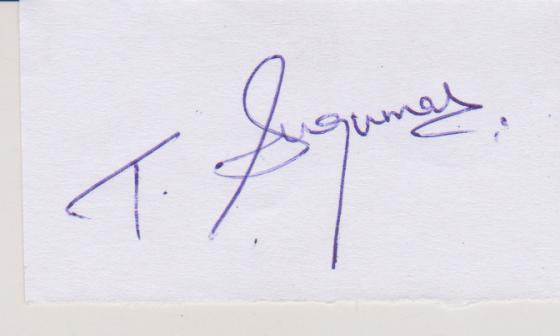 T. Sugumar